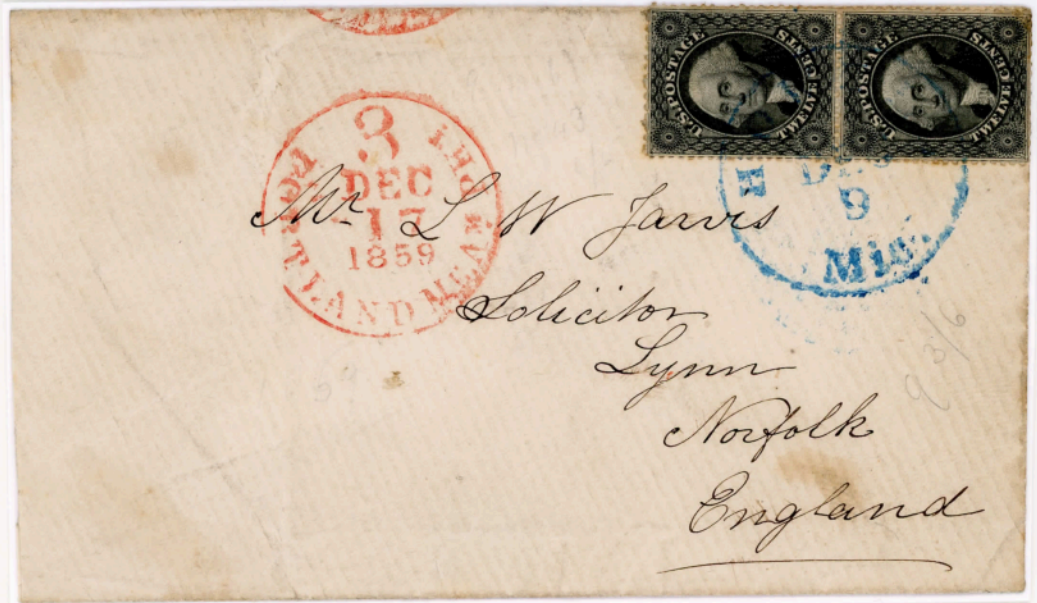 U.S. POSTAGE TWELVE CENTS
U.S. POSTAGE TWELVE CENTS
3
DEC
17
1859
PORTLAND ME AM PKT
DEC
9
Mic.
Mr L W Jarvis
Solicitor
Lynn
Norfolk
England
3/6